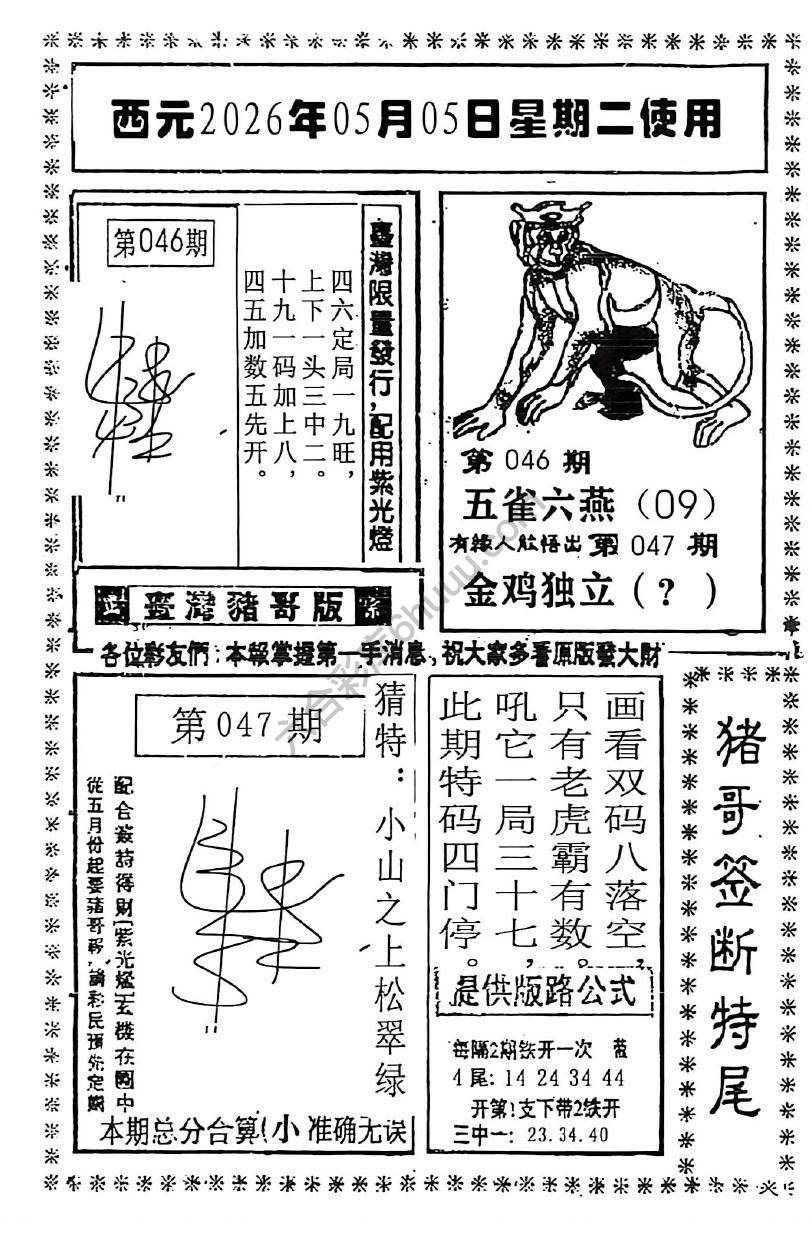 西元2026年05月05日星期二使用
第046期
四六定局一九旺，
上下一头三中二。
十九一码加上八，
四五加数五先开。
臺灣限量發行，配用紫光燈
臺灣豬哥版
第046期
五雀六燕（09）
有緣人能悟出第047期
金鸡独立（？）
各位彩友們：本報掌握第一手消息，祝大家多看原版發大財
第047期
猜特：小山之上松翠绿
從五月份起要豬哥報，請彩民預先定購
本期总分合算（小 准确无误
画看双码八落空，
只有老虎霸有数。
吼它一局三十七，
此期特码四门停。
提供版路公式
每隔2期铁开一次 带
4尾：14 24 34 44
开第1支下带2铁开
三中一：23.34.40
猪哥签断特尾
六合彩库6huuu.com